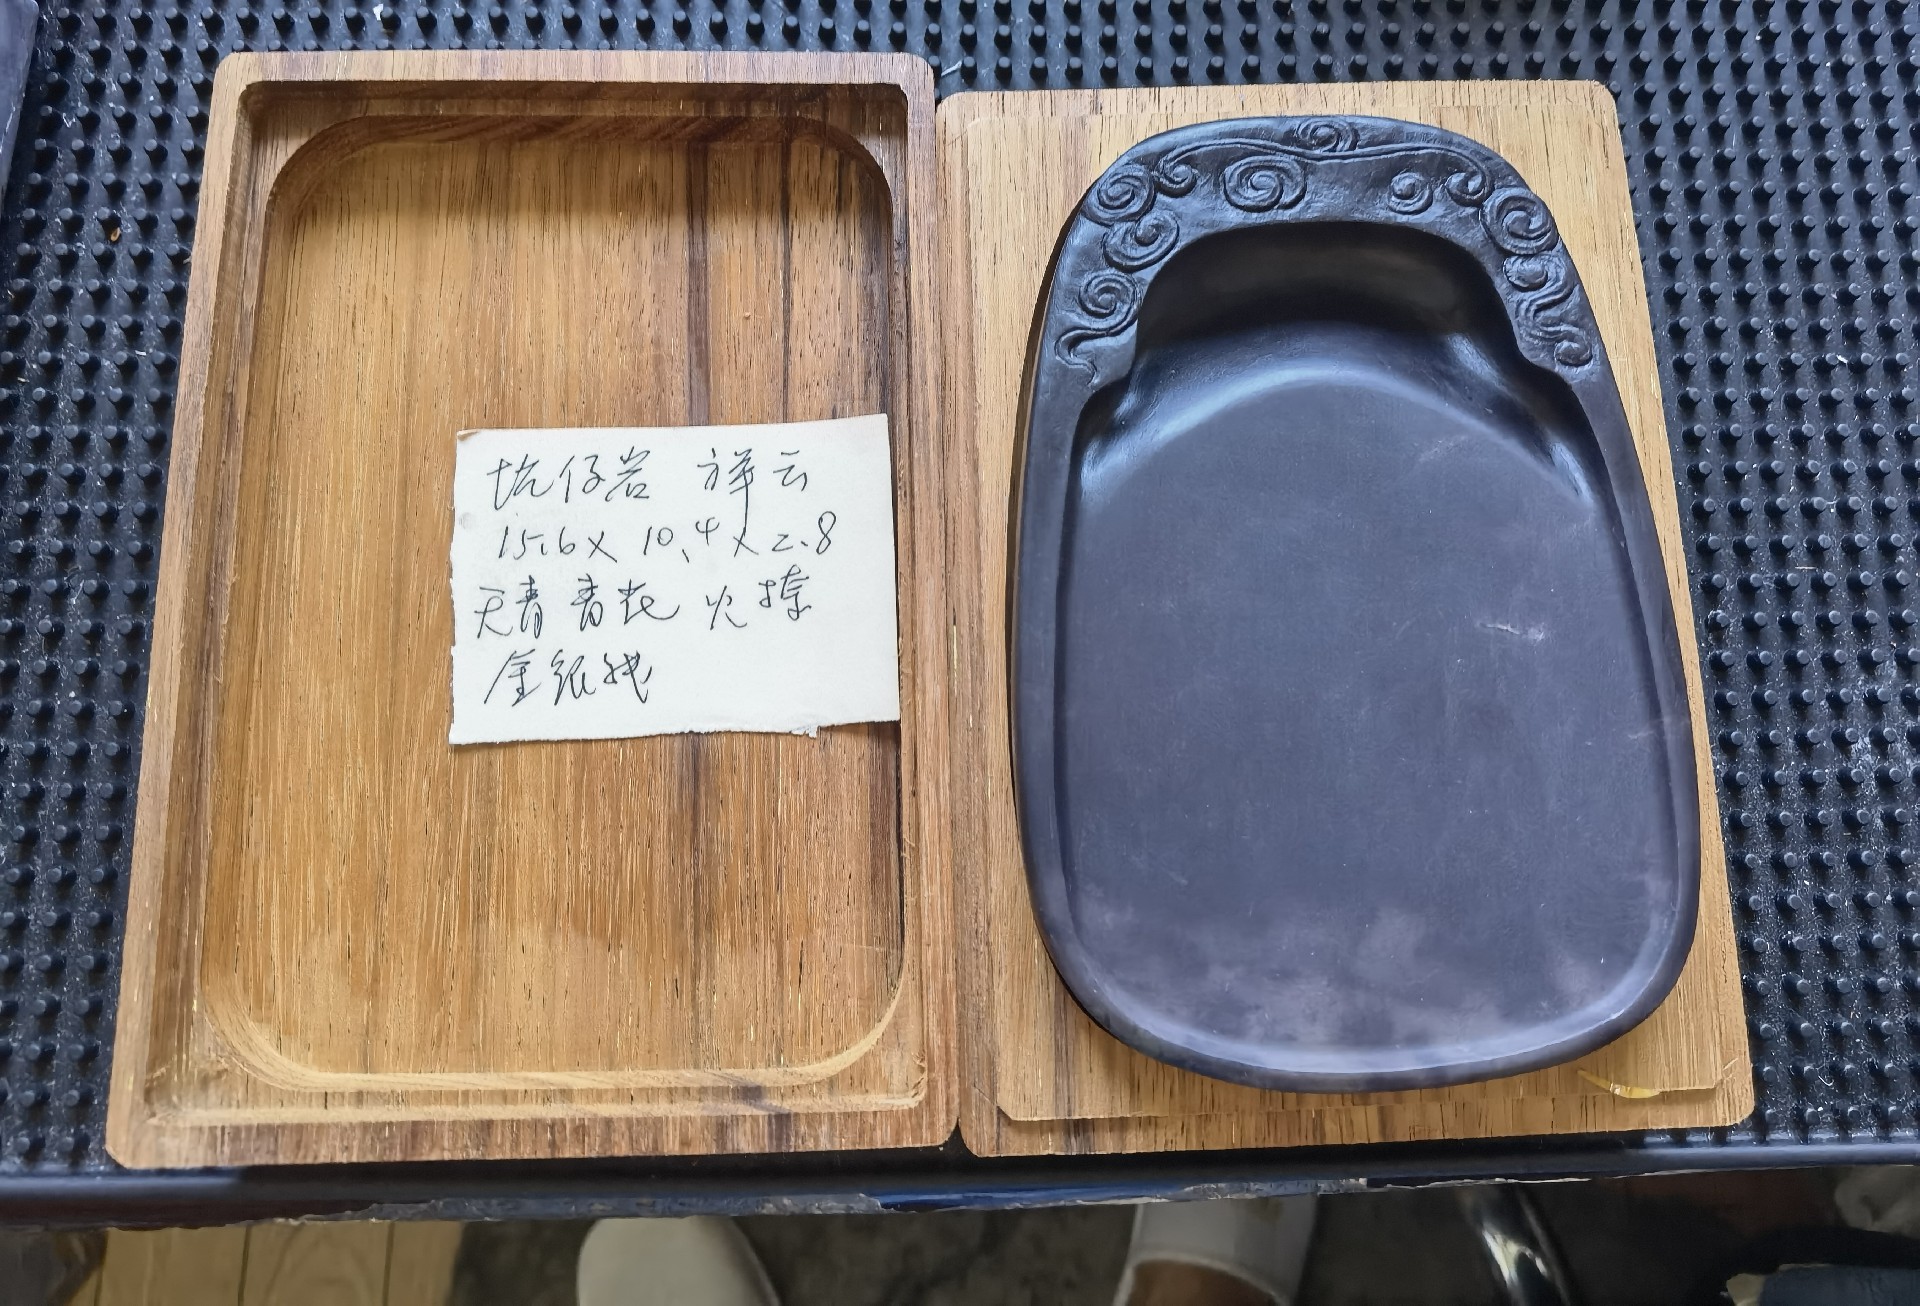 坑仔岩 祥云
15.6x 10.4x2.8
天青 青花 火捺
金银线